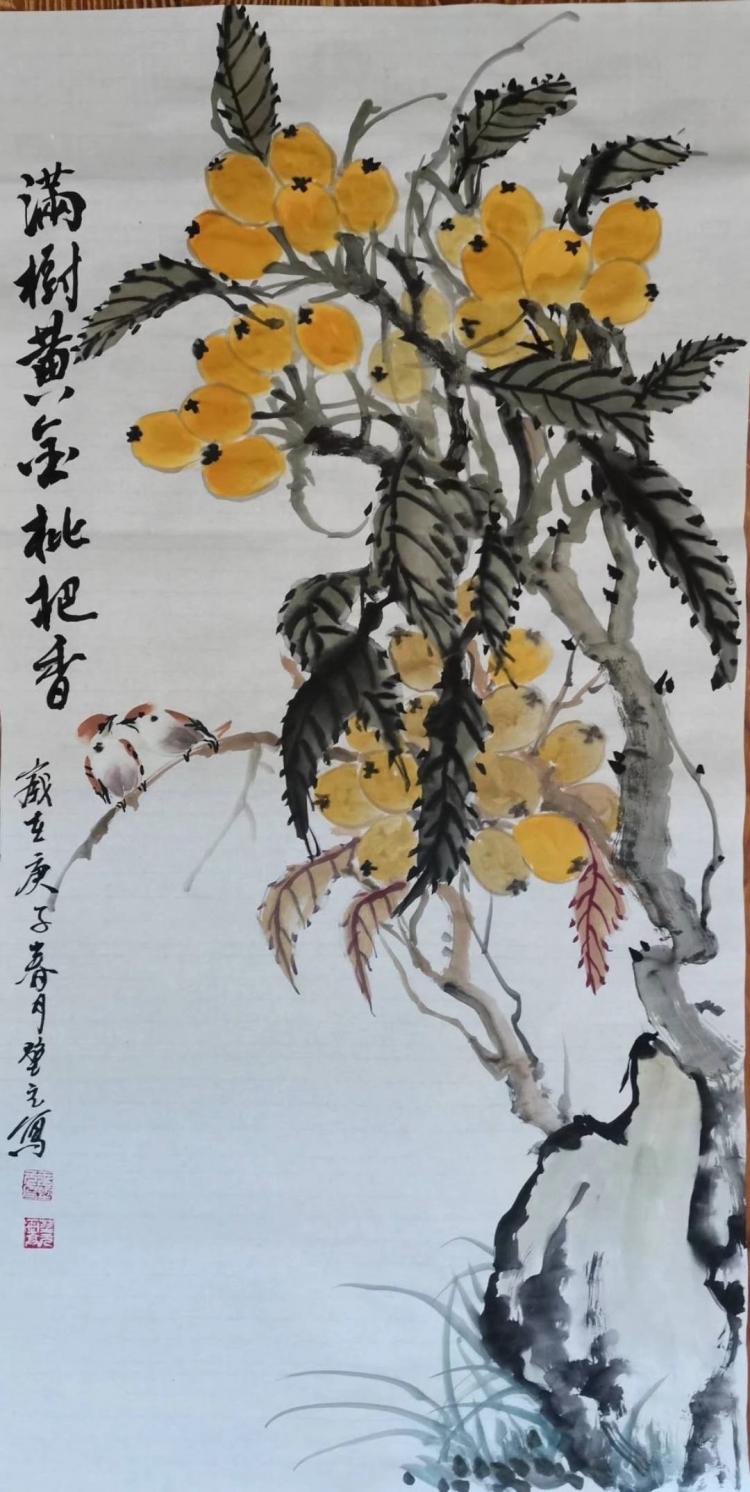 滿樹黃金枇杷香
歲在庚子春月望元寫